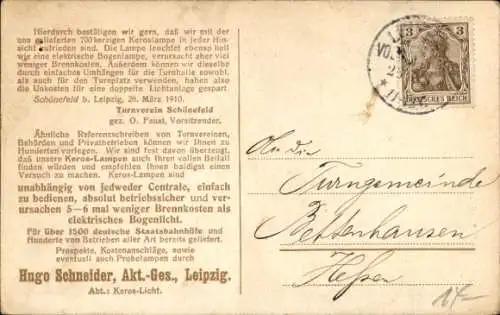 Hierdurch bestätigen wir gern, daß wir mit der
uns gelieferten 700 kerzigen Keroslampe in jeder Hin-
sicht zufrieden sind. Die Lampe leuchtet ebenso hell
wie eine elektrische Bogenlampe, verursacht aber viel
weniger Brennkosten. Außerdem können wir dieselbe
durch einfaches Umhängen für die Turnhalle sowohl,
als auch für den Turnplatz verwenden, haben also
die Unkosten für eine doppelte Lichtanlage gespart.
Schönefeld b. Leipzig, 26. März 1910.
Turnverein Schönefeld
gez. O. Faust, Vorsitzender.
Ähnliche Referenzschreiben von Turnvereinen,
Behörden und Privatbetrieben können wir Ihnen zu
Hunderten vorlegen. Wir sind fest davon überzeugt,
daß unsere Keros-Lampen auch Ihren vollen Beifall
finden würden und empfehlen Ihnen baldigst einen
Versuch zu machen. Keros-Lampen sind
unabhängig von jedweder Centrale, einfach
zu bedienen, absolut betriebssicher und ver-
ursachen 5—6 mal weniger Brennkosten als
elektrisches Bogenlicht.
Für über 1500 deutsche Staatsbahnhöfe und
Hunderte von Betrieben aller Art bereits geliefert.
Prospekte, Kostenanschläge, sowie
eventuell auch Probelampen durch
Hugo Schneider, Akt.-Ges., Leipzig.
Abt.: Keros-Licht.
3 3
DEUTSCHES REICH
An die
Turngemeinde
Bettenhausen
Hessen